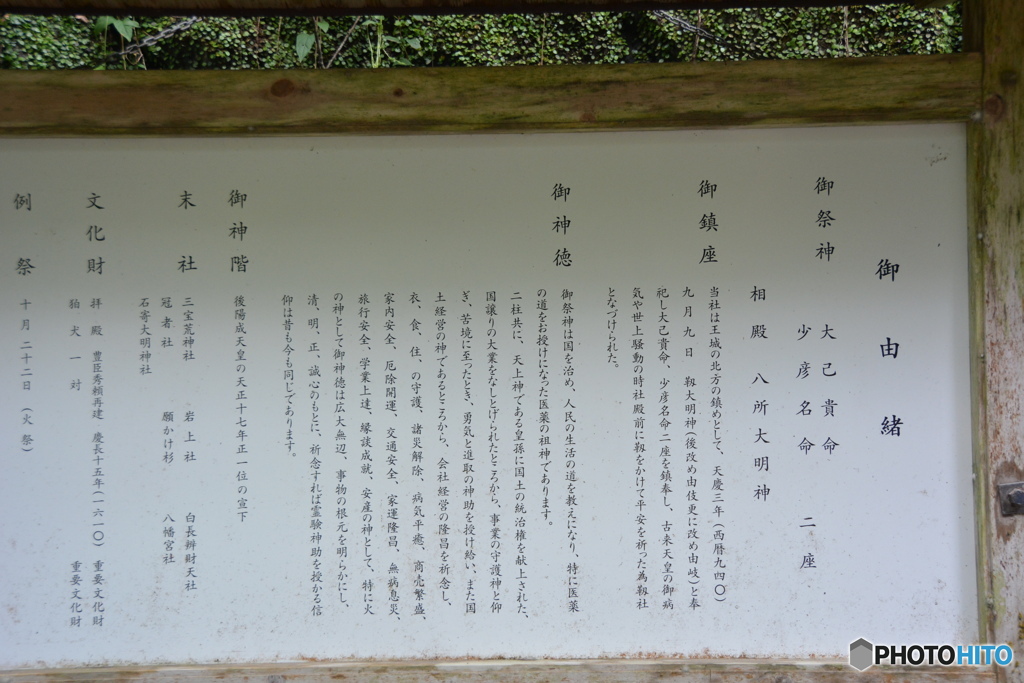 御由緒
御祭神 大己貴命
少彦名命 二座
相殿 八所大明神
御鎮座 当社は王城の北方の鎮めとして、天慶三年(西暦九四〇)
九月九日 靱大明神(後改め由伎更に改め由岐)と奉
祀し大己貴命、少彦名命二座を鎮奉し、古来天皇の御病
気や世上騒動の時社殿前に靱をかけて平安を祈った為靱社
となづけられた。
御神徳 御祭神は国を治め、人民の生活の道を教えになり、特に医薬
の道をお授けになった医薬の祖神であります。
二柱共に、天上神である皇孫に国土の統治権を献上された、
国譲りの大業をなしとげられたところから、事業の守護神と仰
ぎ、苦境に至ったとき、勇気と進取の神助を授け給い、また国
土経営の神であるところから、会社経営の隆昌を祈念し、
衣、食、住、の守護、諸災解除、病気平癒、商売繁盛、
家内安全、厄除開運、交通安全、家運隆昌、無病息災、
旅行安全、学業上達、縁談成就、安産の神として、特に火
の神として御神徳は広大無辺、事物の根元を明らかにし、
清、明、正、誠心のもとに、祈念すれば霊験神助を授かる信
仰は昔も今も同じであります。
御神階 後陽成天皇の天正十七年正一位の宣下
末社 三宝荒神社 岩上社 白長辨財天社
冠者社 願かけ杉 八幡宮社
石寄大明神社
文化財 拝殿 豊臣秀頼再建 慶長十五年(一六一〇) 重要文化財
狛犬一対 重要文化財
例祭 十月二十二日 (火祭)
PHOTOHITO